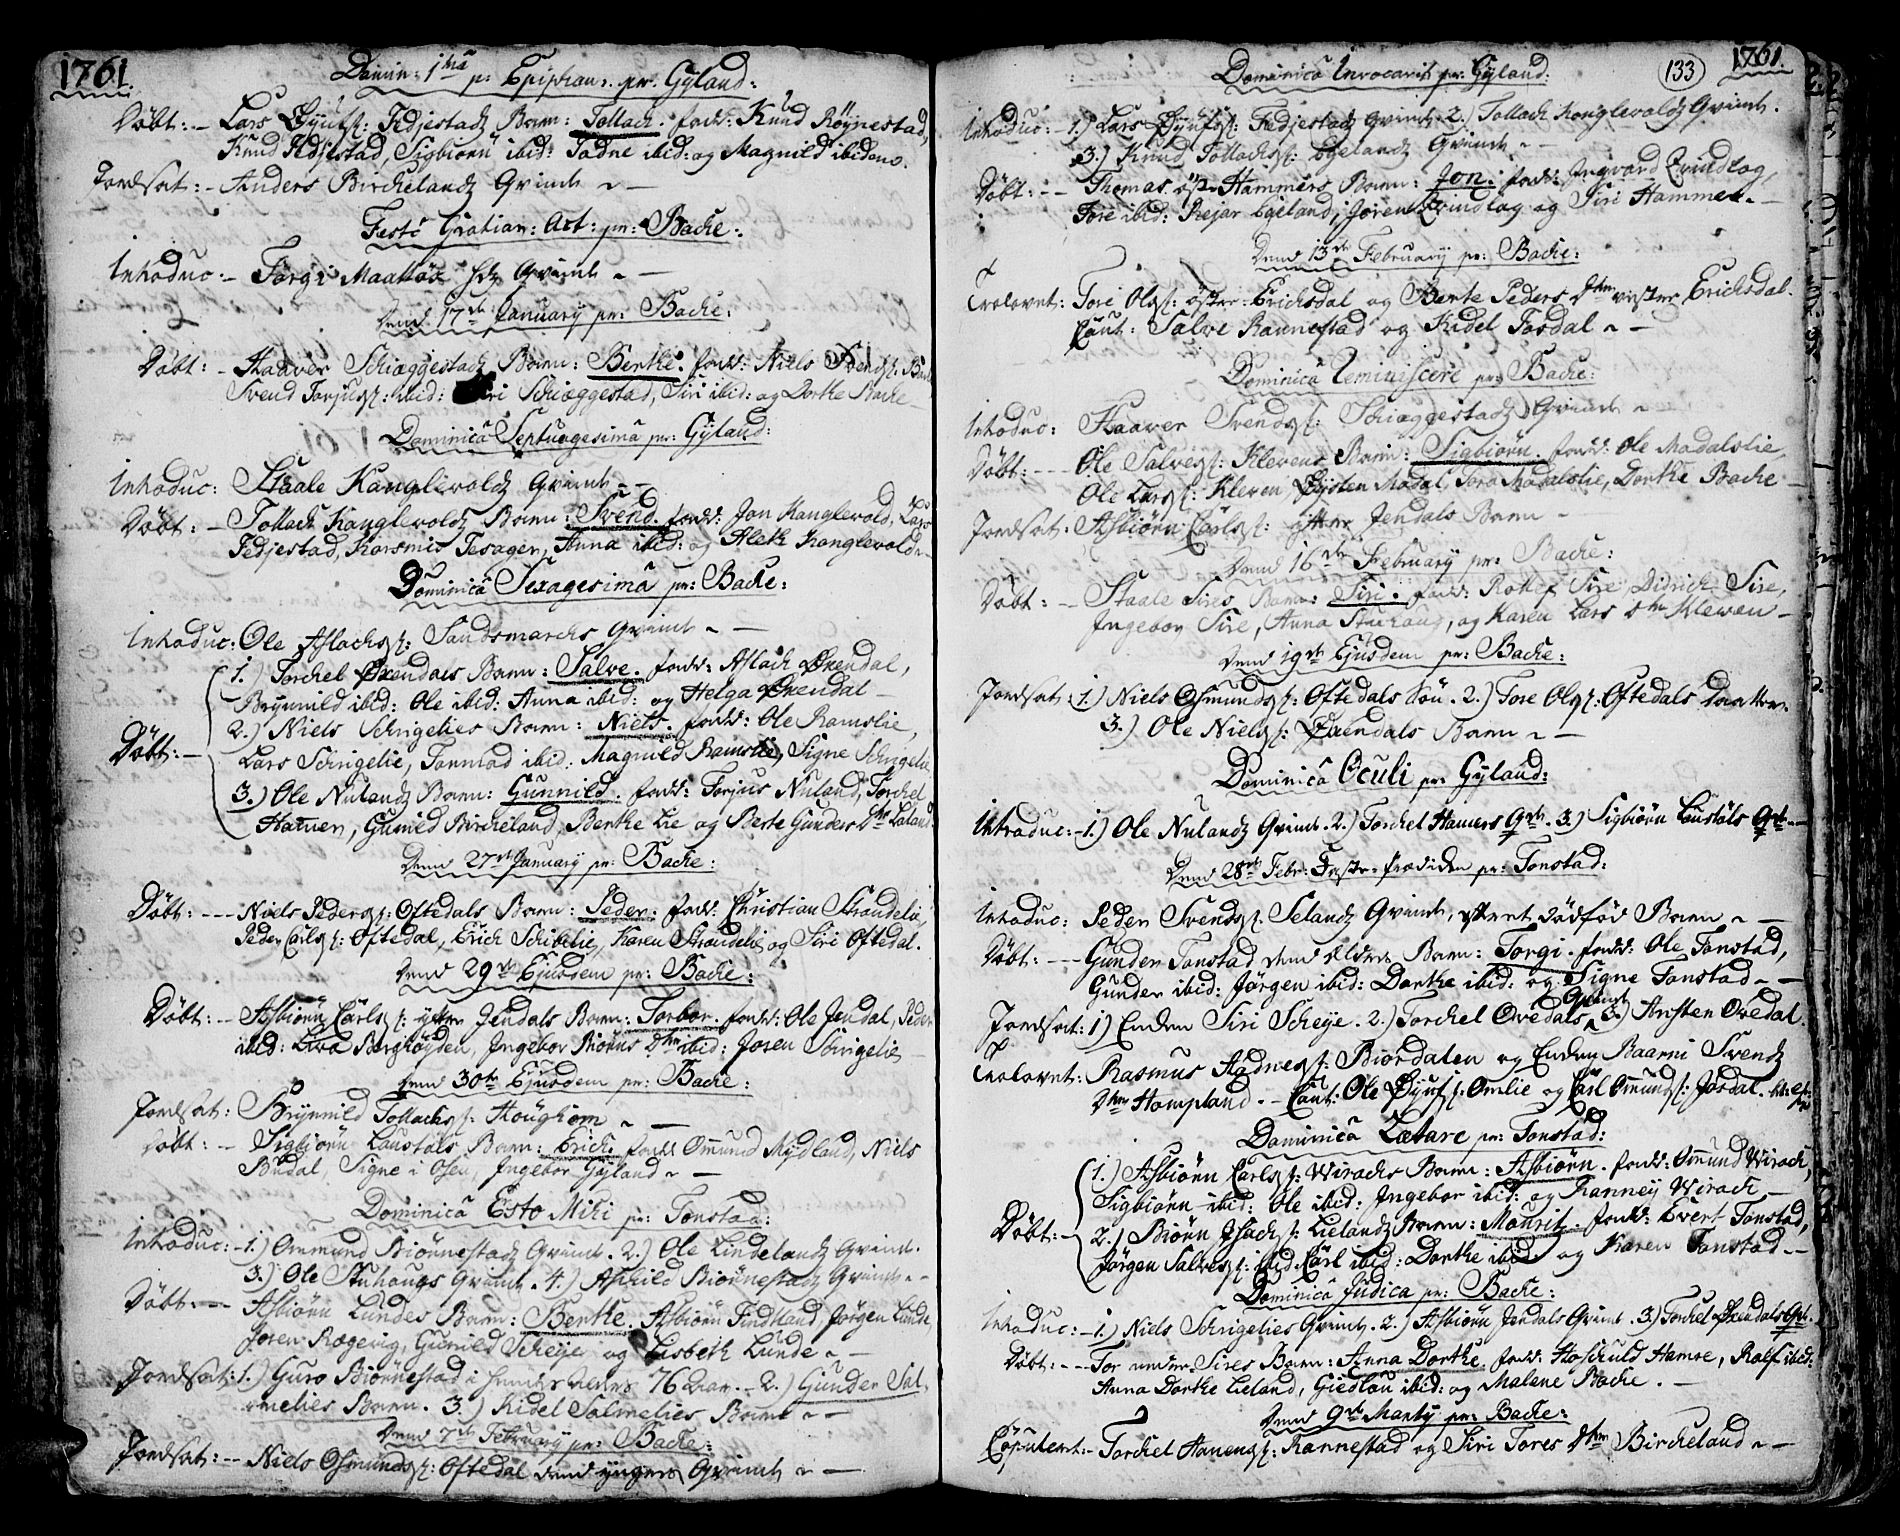 1761.
Domin: 1ma p: Epiphan: pr. Gyland:
Döbt: – Lars Øÿufs: Fedjestads Barn: Tollach. fadd: Knud Röynestad,
Knud Fedjestad, Sigbiörn ibid: Tadne ibid: og Magnild ibidem.
Jordsat: – Anders Birchelands Qvinde –
Festo Gratiar: Act: pr: Bache:
Introduc: – Torgi Maattös Qvinde –
Dend 17de January pr: Bache:
Döbt: – Haaver Schiæggestads Barn: Berthe. fadd: Niels Svends:
Svend Torjuss: ibid: Siri Schiæggestad, Siri ibid: og Dorthe Bache –
Dominica Septuagesima pr: Gyland:
Introduc: Staale Kanglevolds Qvinde –
Döbt: – Tollach Kanglevolds Barn: Svend. fadd: Jon Kanglevold, Lars
Fedjestad, Rasmus Tesager, Anna ibid: og Aleth Kanglevold –
Dominica Sexagesima pr: Bache:
Introduc: Ole Aslachs: Sandsmarchs Qvinde –
1.) Torchel Øxendals Barn: Salve. fadd: Aslach Øxendal,
Brynnild ibid: Ole ibid: Anna ibid: og Helga Øxendal –
2.) Niels Schrigelies Barn: Niels. fadd: Ole Ramslie,
Döbt: – Lars Schrigelie, Tormod ibid: Magnild Ramslie, Signe Schrigelie
3.) Ole Nulands Barn: Gunnild. fadd: Torjus Nuland, Torchel
Hamer, Gunild Bircheland, Berthe Lie og Berte Gunders Dtr Laland
Dend 27de January pr: Bache:
Döbt: --- Niels Peders: Oftedals Barn: Peder. fadd: Christian Strandelie,
Peder Carls: Oftedal, Erich Schibelie, Karen Strandelie og Siri Oftedal.
Dend 29de Ejusdem pr: Bache:
Döbt: – Asbiörn Carls: yttre Jendals Barn: Torbor. fadd: Ole Jendal, Peder
ibid: Liva Berghöyden, Ingebor Biörns Dtr ibid: Joren Schrigelie
Dend 30te Ejusdem pr: Bache:
Jordsat: Brynnild Tollachs: Houghom –
Döbt: – Sigbiörn Laustöls Barn: Erich. fadd: Ommund Mydland, Niels
Budal, Signe i Osen, Ingebor Gyland –
Dominica Esto Mihi pr: Tonstad:
Introduc: – 1.) Ommund Biönnestads Qvinde. 2.) Ole Lindelands Qvinde.
3.) Ole Stuhougs Qvinde. 4.) Aschild Biönnestads Qvinde –
Döbt: -- Asbiörn Lundes Barn: Berthe. Asbiörn Findland, Jörgen Lunde,
Joren Rægevig, Gunild Scheje og Lisbeth Lunde –
Jordsat: 1.) Guro Biönnestad i hendes alders 76 aar. – 2.) Gunder Sal-
melies Barn. 3.) Kidel Salmelies Barn –
Dend 7de February pr: Bache:
Jordsat: -- Niels Osmunds: Oftedal dend yngres Qvinde –
133
1761.
Dominica Invocavit pr: Gyland:
Introduc: – 1.) Lars Øÿufs: Fedjestads Qvinde 2.) Tollach Kanglevolds Qvinde.
3.) Knud Tollachs: Egelands Qvinde –
Döbt: -- Thomas Hammers Barn: Jon. fadd: Ingvard Qvindlog,
Tore ibid: Rejar Egeland, Joren Qvindlog og Siri Hammer. –
Dend 13de February pr: Bache:
Trolovet: Tore Ols: östre Erichsdal og Bente Peders Dtr vestre Erichsdal.
Caut: Salve Rannestad og Kidel Fosdal –
Dominica Reminiscere pr: Bache:
Introduc: Haaver Svends: Schiæggestads Qvinde –
Döbt: --- Ole Salves: Klevens Barn: Sigbiörn. fadd: Ole Madalslie,
Ole Lars: Kleven, Øysten Modal, Tora Madalslie, Dorthe Bache –
Jordsat: Asbiörn Carls: yttre Jendals Barn –
Dend 16de February pr: Bache:
Döbt: – Staale Sires Barn: Siri. fadd: Rollef Sire, Didrich Sire,
Ingebor Sire, Anna Stuhoug, og Karen Lars Dtr Kleven –
Dend 19de Ejusdem pr: Bache:
Jordsat: 1.) Niels Osmunds: Oftedals Sön. 2.) Tore Ols: Oftedals Daatter.
3.) Ole Niels: Øxendals Barn –
Dominica Oculi pr: Gyland:
Introduc: – 1.) Ole Nulands Qvinde. 2.) Torchel Hamers Qde. 3.) Sigbiörn Laustöls Qde. –
Dend 28de Febr: pr: Tonstad:
Introduc: Peder Svends: Selands Qvinde, efter et dödfød Barn –
Döbt: --- Gunder Tonstad dend eldres Barn: Torgi. fadd: Ole Tonstad,
Gunder ibid: Jörgen ibid: Dorthe ibid: og Signe Tonstad –
Jordsat: 1) Enchen Siri Scheje. 2.) Torchel Ovedals Qvinde 3.) Arsten Ovedal.
Trolovet: Rasmus Hadnes: Biordalen og Enchen Baarni Svends
Dtr Hompland. – Caut: Ole Øÿufs: Omlie og Carl Omunds: Josdal.
Dominica Lætare pr: Tonstad:
1.) Asbiörn Carls: Wirachs Barn: Asbiörn. fadd: Ommund Wirach,
Sigbiörn ibid: Ole ibid: Ingebor ibid: og Ranney Wirach –
Döbt: – 2.) Biörn Isachs: Lielands Barn: Mauritz. fadd: Evert Tonstad,
Jörgen Salves: ibid Carl ibid: Dorthe ibid: og Karen Tonstad –
Dominica Judica pr: Bache:
Introduc: – 1.) Niels Schrigelies Qvinde. 2.) Asbiörn Jendals Qvinde. 3.) Torchel Øxendals Qde.
Döbt: --- Tor nedre Sires Barn: Anna Dorthe. fadd: Hoschuld Hamre, Rolf ibid:
Anna Dorthe Lieland, Giedlöu ibid: og Malene Bache. –
Dend 9de Marty pr: Bache:
Copuleret: – Torchel Hanens: Rannestad og Siri Tores Dtr Bircheland –